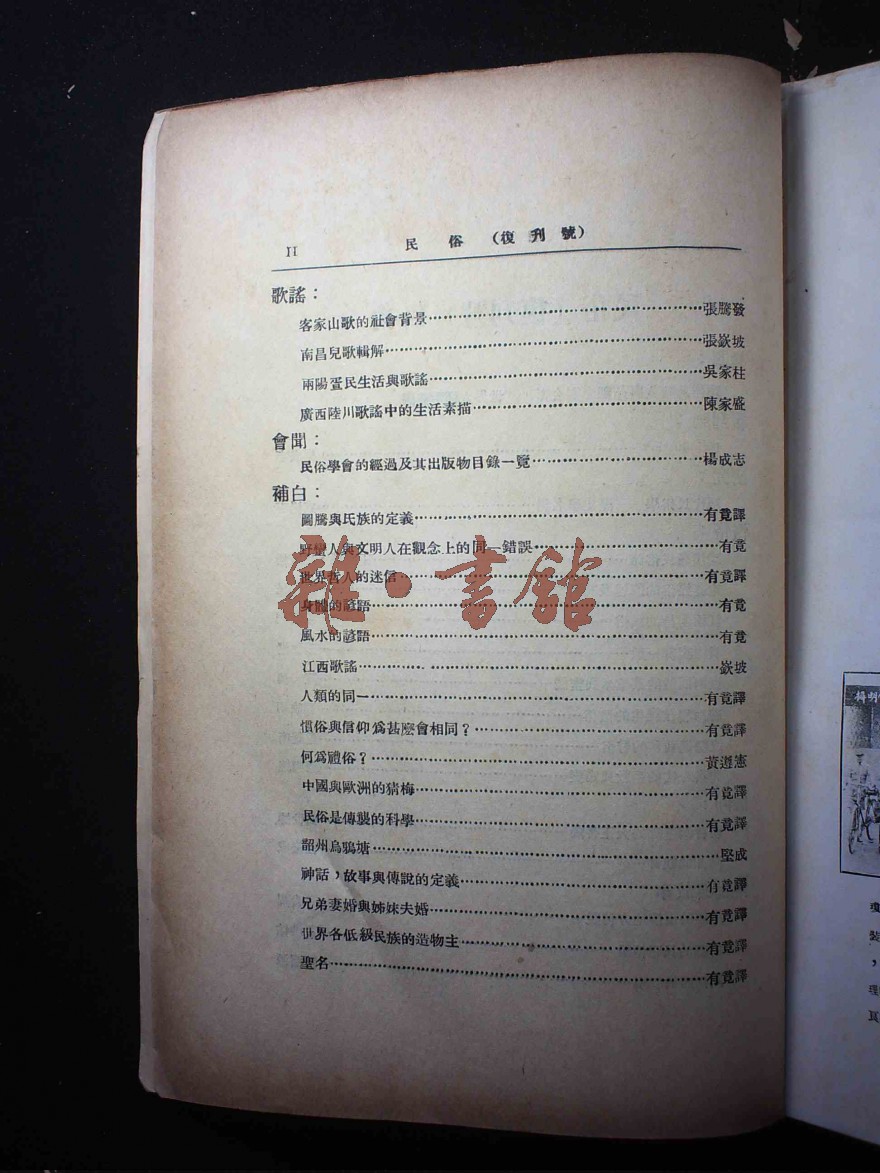 II 民 俗 (復 刊 號)
歌謠：
客家山歌的社會背景……張騰發
南昌兒歌輯解……張嶔坡
兩陽疍民生活與歌謠……吳家柱
廣西陸川歌謠中的生活素描……陳家盛
會聞：
民俗學會的經過及其出版物目錄一覽……楊成志
補白：
圖騰與氏族的定義……有竟譯
野蠻人與文明人在觀念上的同一錯誤……有竟
世界哲人的迷信……有竟譯
身體的諺語……有竟
風水的諺語……有竟
江西歌謠……嶔坡
人類的同一……有竟譯
慣俗與信仰爲甚麼會相同？……有竟譯
何爲禮俗？……黃遵憲
中國與歐洲的猜梅……有竟譯
民俗是傳襲的科學……有竟譯
韶州烏鴉塘……堅成
神話，故事與傳說的定義……有竟譯
兄弟妻婚與姊妹夫婚……有竟譯
世界各低級民族的造物主……有竟譯
聖名……有竟譯
雜·書館